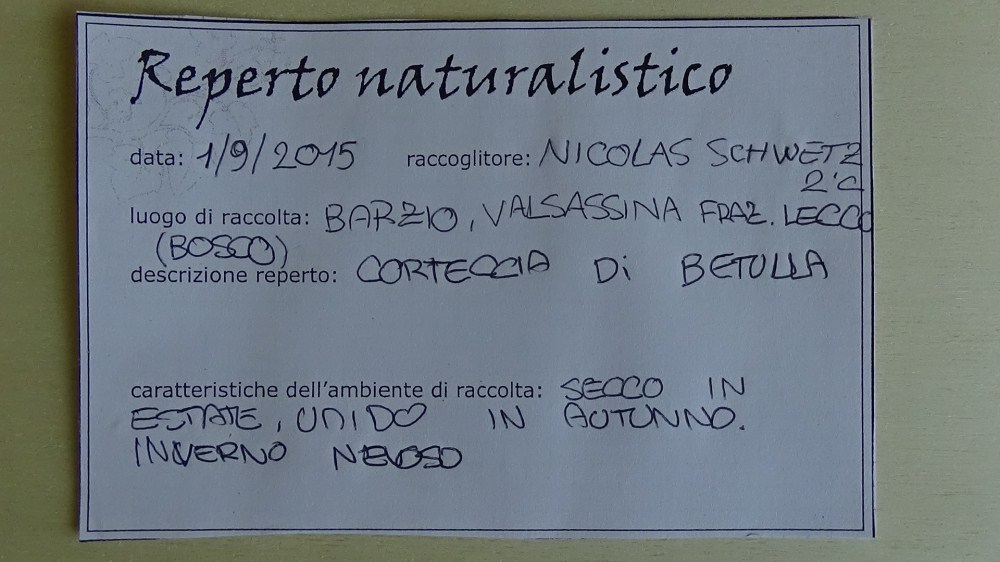 Reperto naturalistico
data: 1/9/2015 raccoglitore: NICOLAS SCHWETZ
2°C
luogo di raccolta: BARZIO, VALSASSINA FRAZ. LECCO
(BOSCO)
descrizione reperto: CORTECCIA Di BETULLA
caratteristiche dell'ambiente di raccolta: SECCO IN
ESTATE, UMIDO IN AUTUNNO.
INVERNO NEVOSO